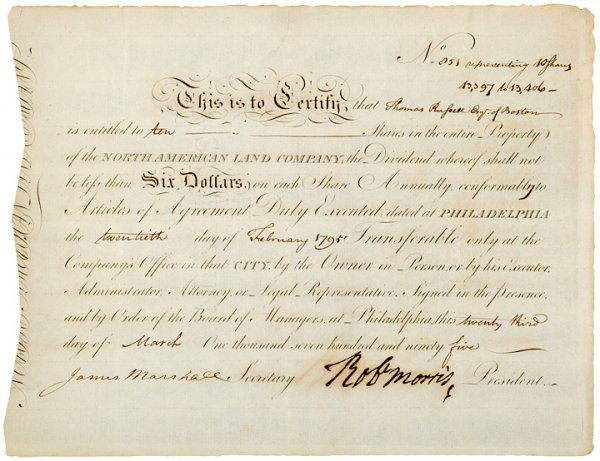 No 851 representing 10 Shares
13,397 to 13,406 —
This is to Certify, that Thomas Russell Esqr. of Boston
is entitled to ten Shares in the entire Property
of the NORTH AMERICAN LAND COMPANY, the Dividend whereof shall not
be less than Six Dollars, on each Share Annually, conformably to
Articles of Agreement Duly Executed, dated at PHILADELPHIA
the twentieth day of February 1795 Transferable only at the
Company's Office in that CITY, by the Owner in Person, or by his Executor,
Administrator, Attorney, or Legal Representative. Signed in the Presence,
and by Order of the Board of Managers, at Philadelphia, this twenty third
day of March One thousand seven hundred and ninety five
James Marshall Secretary Robt Morris, President